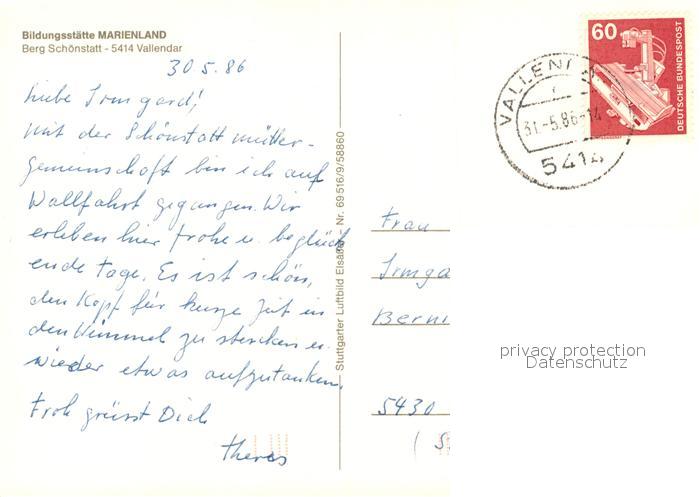 Bildungsstätte MARIENLAND
Berg Schönstatt - 5414 Vallendar
30.5.86
Liebe Irmgard!
Mit der Schönstattmütter-
gemeinschaft bin ich auf
Wallfahrt gegangen. Wir
erleben hier frohe u. beglück
ende Tage. Es ist schön,
den Kopf für kurze Zeit in
den Himmel zu strecken u.
wieder etwas aufzutanken.
Froh grüsst Dich
Theres
Stuttgarter Luftbild Elsäßer Nr. 69516/9/58860
60
DEUTSCHE BUNDESPOST
31.-5.86-14
5414
Frau
Irmga
Berni
privacy protection
Datenschutz
5430